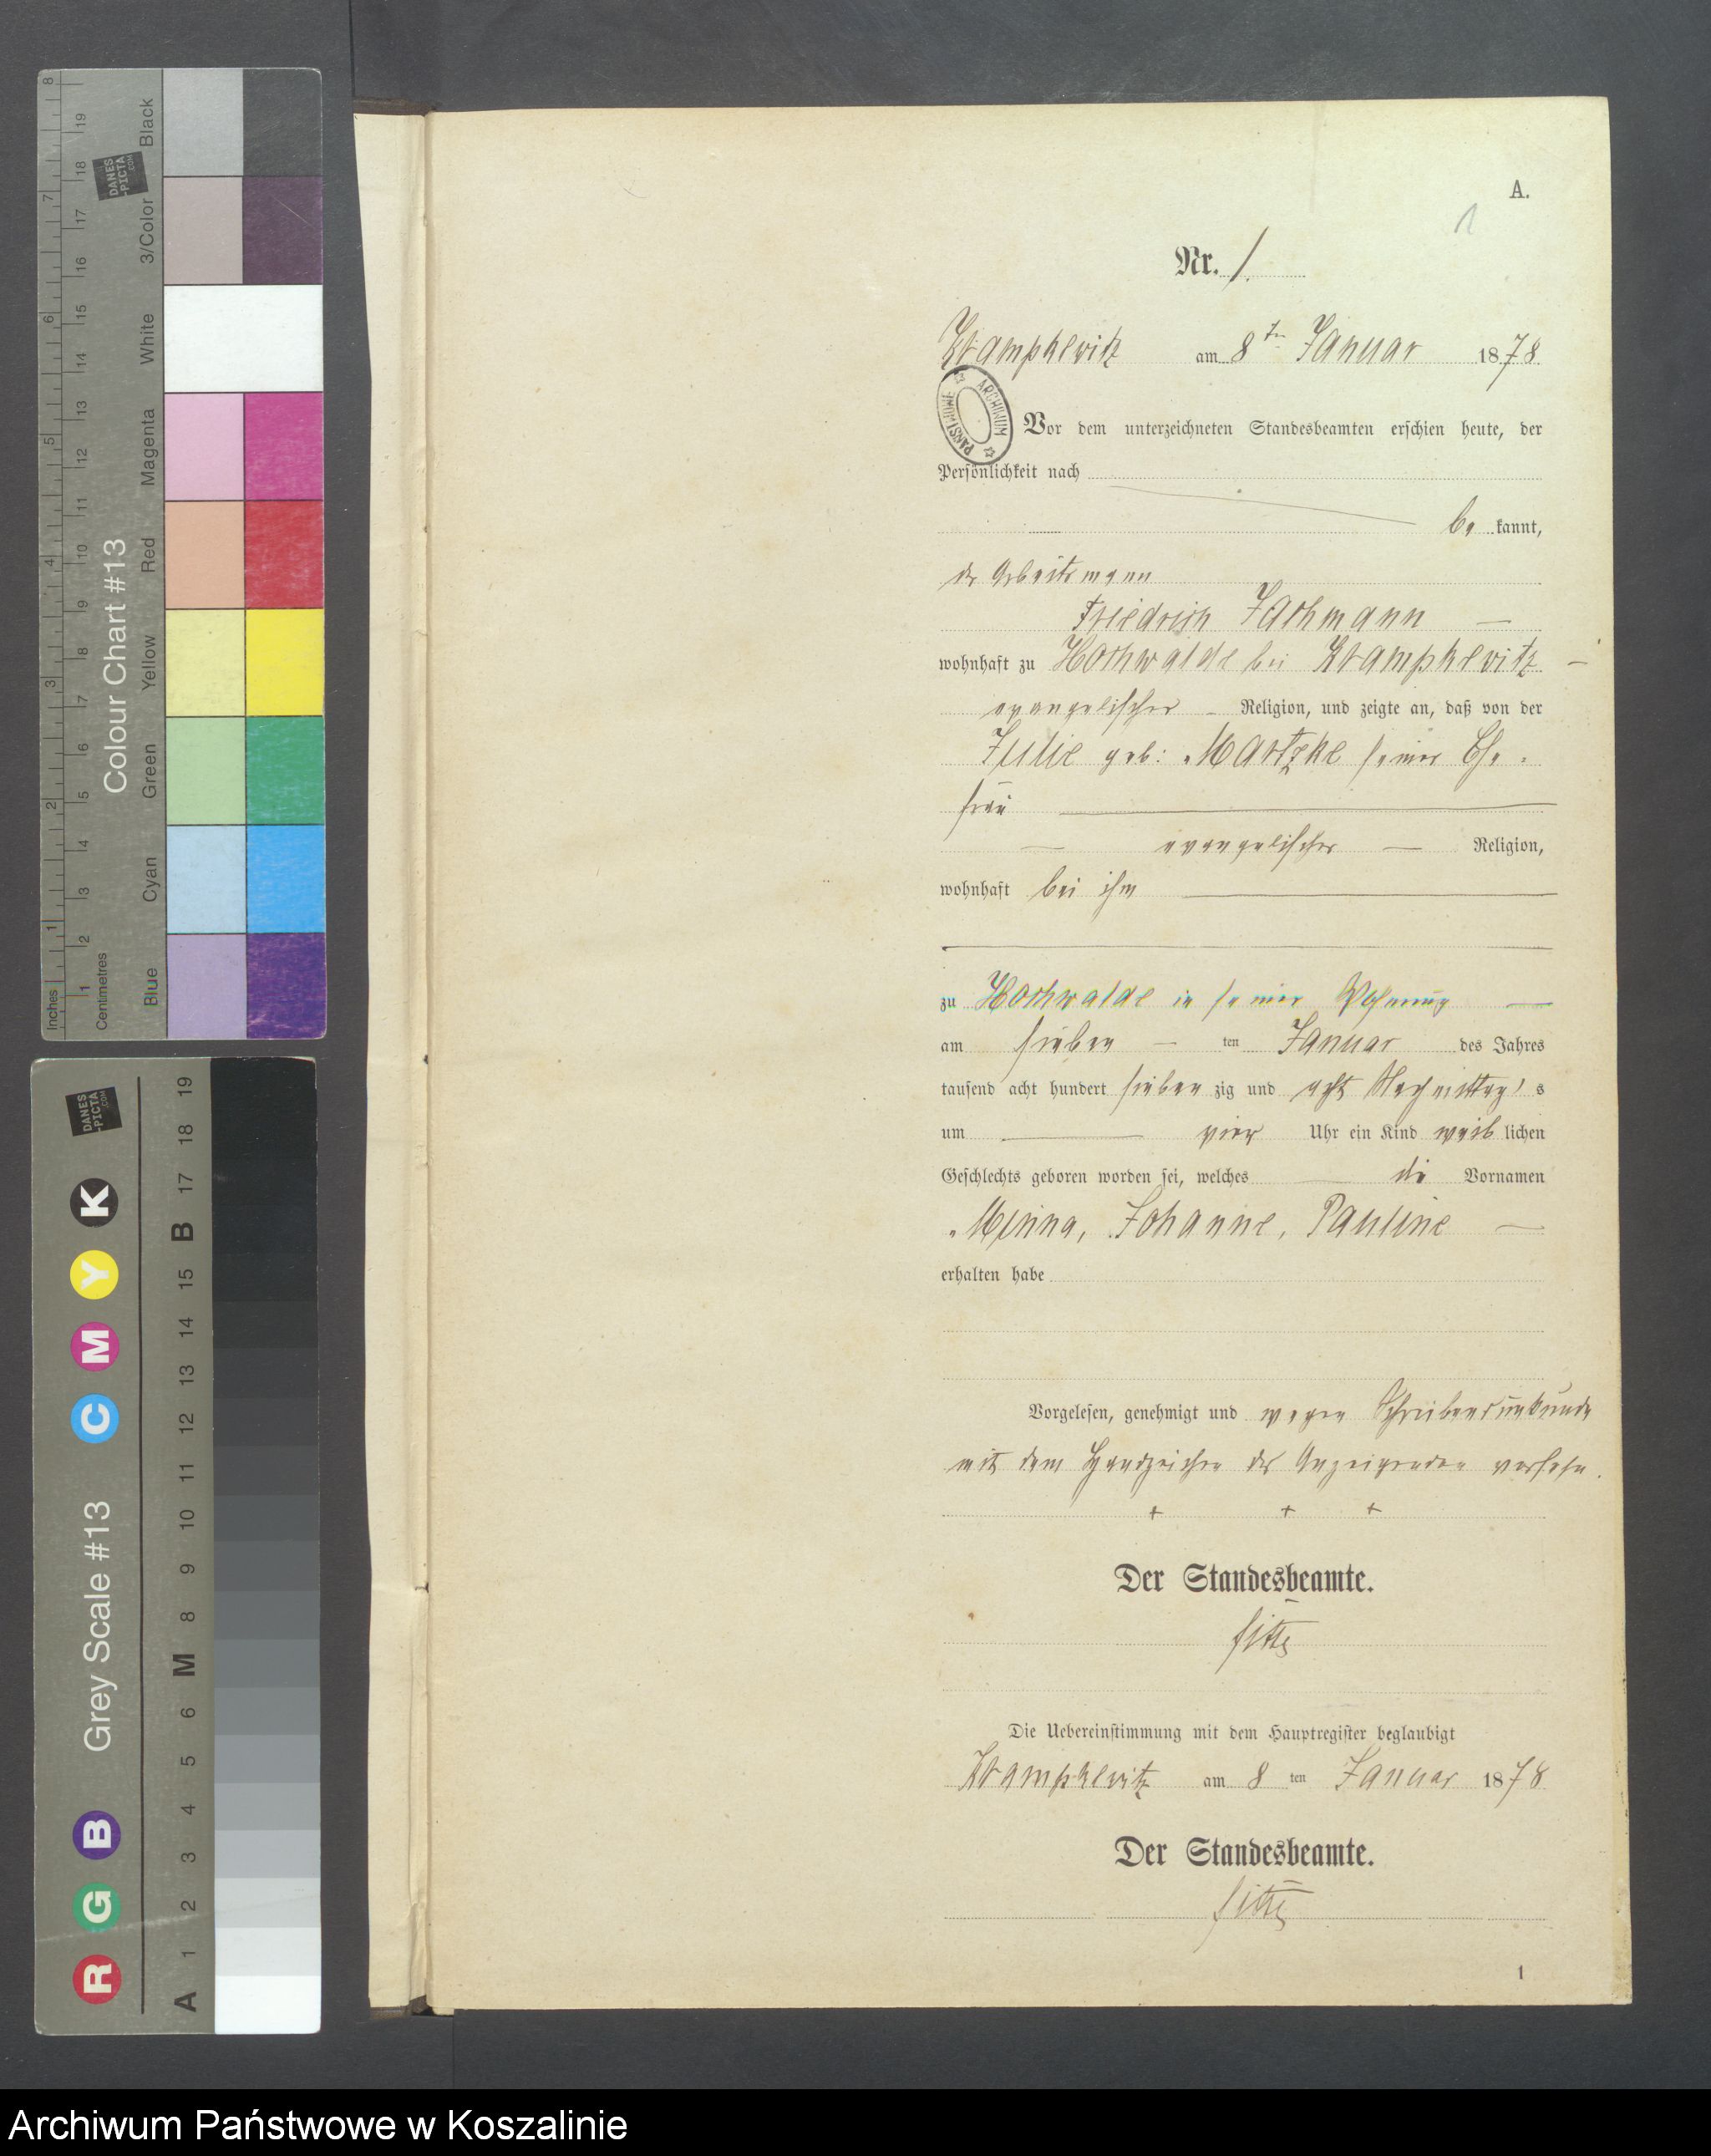 A.
1
Nr. 1.
Krampkewitz am 8ten Januar 1878.
Vor dem unterzeichneten Standesbeamten erschien heute, der
Persönlichkeit nach
be kannt,
der Arbeitsmann
Friedrich Jachmann —
wohnhaft zu Hochwalde bei Krampkewitz —
evangelischer – Religion, und zeigte an, daß von der
Julie geb: Martzke seiner Ehe-
frau
— evangelischer — Religion,
wohnhaft bei ihm
zu Hochwalde in seiner Wohnung —
am sieben — ten Januar des Jahres
tausend acht hundert sieben zig und acht Nachmittag's
um — vier Uhr ein Kind weib lichen
Geschlechts geboren worden sei, welches die Vornamen
Minna, Johanne, Pauline —
erhalten habe
Vorgelesen, genehmigt und wegen Schreibensunkunde
mit dem Handzeichen des Anzeigenden versehen.
+ + +
Der Standesbeamte.
Die Uebereinstimmung mit dem Hauptregister beglaubigt
Krampkewitz am 8 ten Januar 1878
Der Standesbeamte.
1
ARCHIWUM PAŃSTWOWE
Colour Chart #13
Blue Cyan Green Yellow Red Magenta White 3/Color Black
Inches 1 2 3 4 5 6 7 8
Centimetres 1 2 3 4 5 6 7 8 9 10 11 12 13 14 15 16 17 18 19
DANES
-PICTA
.COM
Grey Scale #13
R G B C M Y K
A 1 2 3 4 5 6 M 8 9 10 11 12 13 14 15 B 17 18 19
DANES
-PICTA
.COM
Archiwum Państwowe w Koszalinie